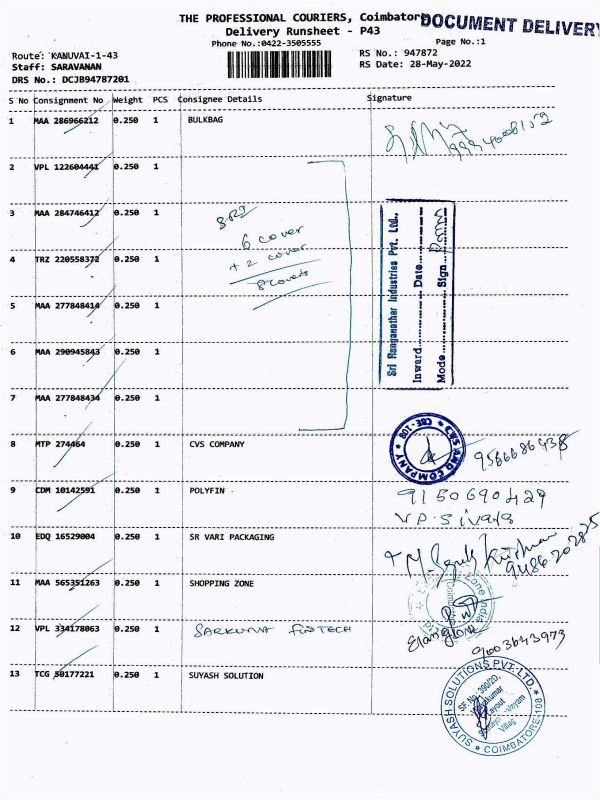 THE PROFESSIONAL COURIERS, Coimbatore
DOCUMENT DELIVERY
Delivery Runsheet - P43
Phone No.:0422-3505555
Page No.:1
Route: KANUVAI-1-43
RS No.: 947872
Staff: SARAVANAN
RS Date: 28-May-2022
DRS No.: DCJB94787201
S No Consignment No Weight PCS Consignee Details Signature
1 MAA 286966212 0.250 1 BULKBAG
9994008152
2 VPL 122604441 0.250 1
3 MAA 284746412 0.250 1
SRI
6 cover
+ 2 cover
8 covers
4 TRZ 220558372 0.250 1
5 MAA 277848414 0.250 1
6 MAA 290945843 0.250 1
7 MAA 277848434 0.250 1
Sri Ranganathar Industries Pvt. Ltd.,
Inward Date
Mode Sign
8 MTP 274464 0.250 1 CVS COMPANY
CVS AND COMPANY
CBE-108
9566686438
9 CDM 10142591 0.250 1 POLYFIN
9150690429
V.P. Sivara
10 EDQ 16529004 0.250 1 SR VARI PACKAGING
9486202825
11 MAA 565351263 0.250 1 SHOPPING ZONE
Zone India
12 VPL 334178063 0.250 1 SARKUNA FINTECH
Elangovan
9003643973
13 TCG 50177221 0.250 1 SUYASH SOLUTION
SUYASH SOLUTIONS PVT. LTD.
SF.No: 390/2D,
Layout
COIMBATORE-108